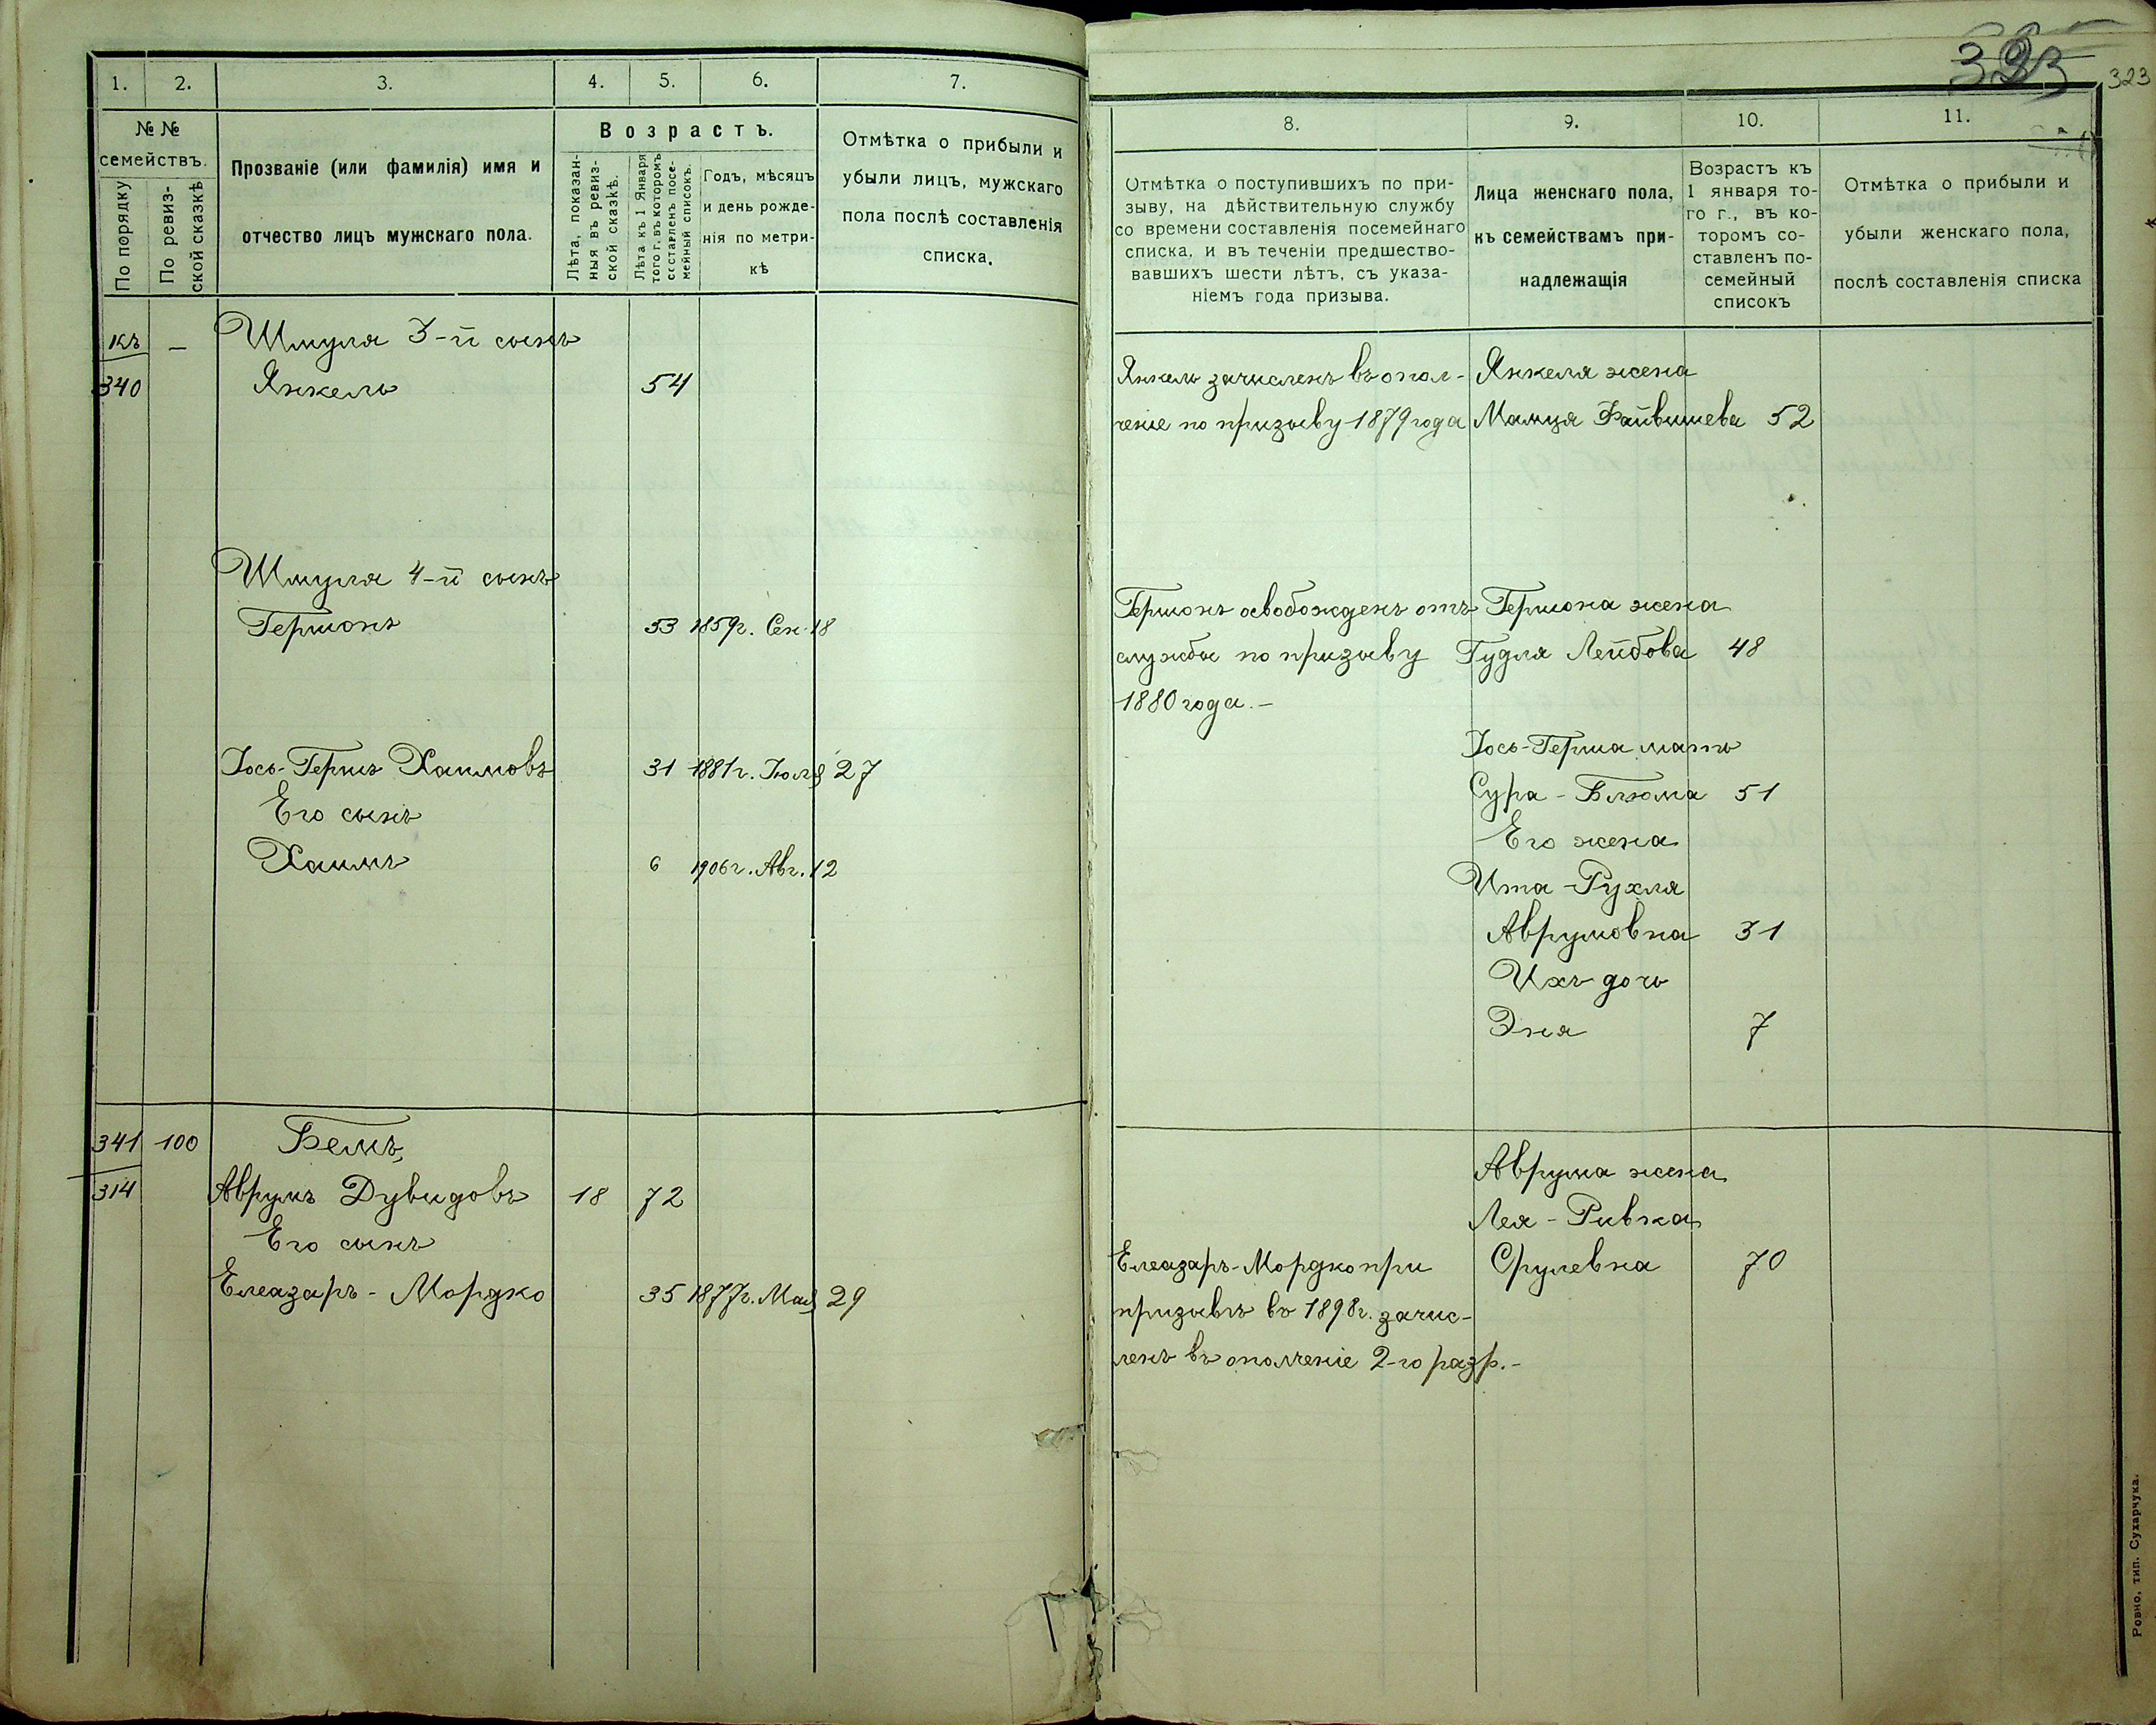 323
323
1. 2. 3. 4. 5. 6. 7.
№ №
семействъ.
По порядку
По ревиз-
ской сказкѣ
Прозваніе (или фамилія) имя и
отчество лицъ мужскаго пола.
Возрастъ.
Лѣта, показан-
ныя въ ревиз-
ской сказкѣ.
Лѣта къ 1 Января
того г. въ которомъ
составленъ посе-
мейный списокъ.
Годъ, мѣсяцъ
и день рожде-
нія по метри-
кѣ
Отмѣтка о прибыли и
убыли лицъ, мужскаго
пола послѣ составленія
списка.
къ — Шмуля 3-й сынъ
340 Янкель 54
Шмуля 4-й сынъ
Гершонъ 53 1859г. Сен. 18
Іось-Гершъ Хаимовъ 31 1881г. Іюля 27
Его сынъ
Хаимъ 6 1906г. Авг. 12
341 100 Бемъ,
314 Аврумъ Дувидовъ 18 72
Его сынъ
Елеазаръ-Мордко 35 1877г. Мая 29
8. 9. 10. 11.
Отмѣтка о поступившихъ по при-
зыву, на дѣйствительную службу
со времени составленія посемейнаго
списка, и въ теченіи предшество-
вавшихъ шести лѣтъ, съ указа-
ніемъ года призыва.
Лица женскаго пола,
къ семействамъ при-
надлежащія
Возрастъ къ
1 января то-
го г., въ ко-
торомъ со-
ставленъ по-
семейный
списокъ
Отмѣтка о прибыли и
убыли женскаго пола,
послѣ составленія списка
Янкель зачисленъ въ опол- Янкеля жена
ченіе по призыву 1879 года Мамця Файвишева 52
Гершонъ освобожденъ отъ Гершона жена
службы по призыву Гудля Лейбова 48
1880 года.-
Іось-Герша мать
Сура-Блюма 51
Его жена
Ита-Рухля
Аврумовна 31
Ихъ дочь
Эня 7
Аврума жена
Лея-Ривка
Елеазаръ-Мордко при Срулевна 70
призывѣ въ 1898г. зачис-
ленъ въ ополченіе 2-го разр.-
Ровно, тип. Сухарчука.